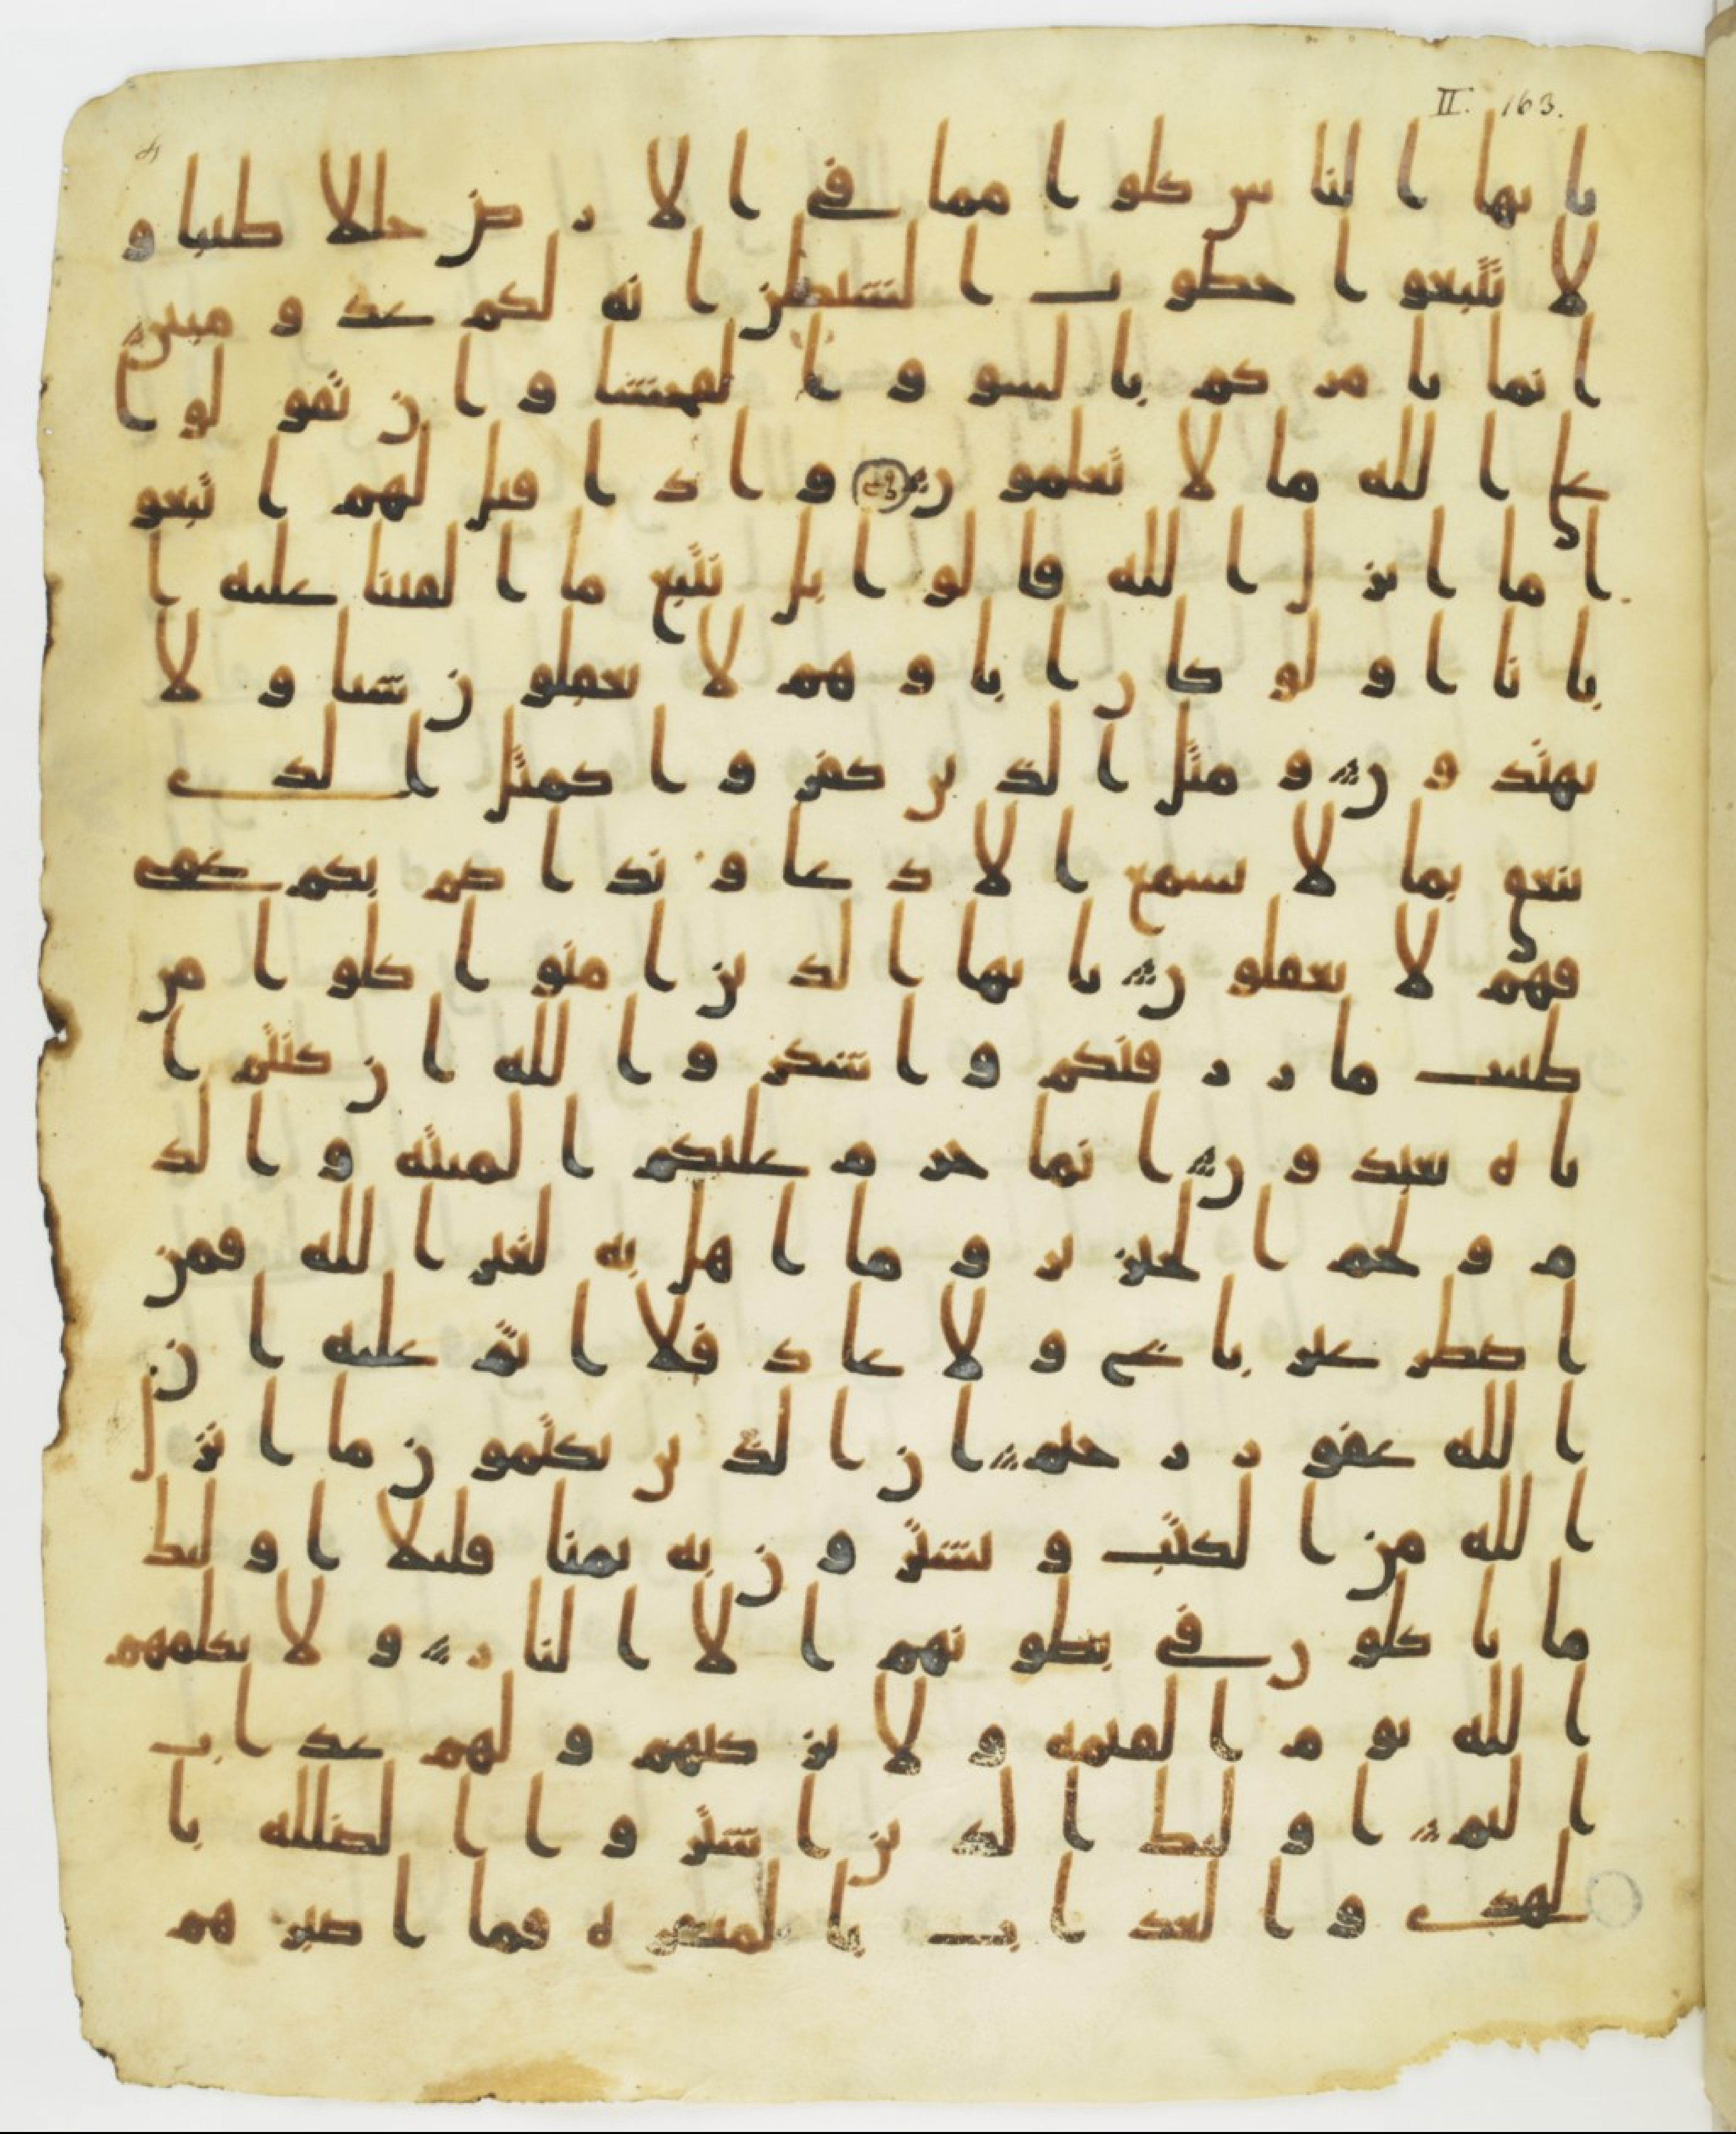 II. 163.
يايها الناس كلوا مما في الارض حللا طيبا و
لا تتبعوا خطوت الشيطن انه لكم عدو مبين
انما يامركم بالسو والفحشا وان تقولوا
على الله ما لا تعلمون واذا قيل لهم اتبعو
ا ما انزل الله قالوا بل نتبع ما الفينا عليه ا
بانا اولو كان اباوهم لا يعقلون شيا ولا
يهتدون ومثل الذين كفروا كمثل الذي
ينعق بما لا يسمع الا دعا وندا صم بكم عمي
فهم لا يعقلون يايها الذين امنوا كلوا من
طيبت ما رزقنكم واشكروا لله ان كنتم ا
ياه تعبدون انما حرم عليكم الميته والد
م ولحم الخنزير وما اهل به لغير الله فمن
اضطر غير باغ ولا عاد فلا اثم عليه ان
الله غفور رحيم ان الذين يكتمون ما انزل
الله من الكتب ويشترون به ثمنا قليلا اوليك
ما ياكلون في بطونهم الا النار ولا يكلمهم
الله يوم القيمه ولا يزكيهم ولهم عذاب
اليم اوليك الذين اشتروا الضلله با
لهدى والعذاب بالمغفره فما اصبرهم